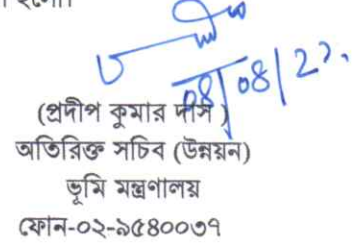 হলো।
০৪/০৪/২১.
(প্রদীপ কুমার দাস)
অতিরিক্ত সচিব (উন্নয়ন)
ভূমি মন্ত্রণালয়
ফোন-০২-৯৫৪০০৩৭